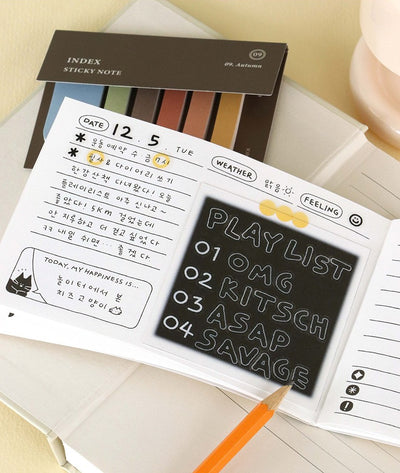 INDEX
STICKY NOTE
09
09. Autumn
DATE 12. 5. TUE
WEATHER 맑음
FEELING
* 오늘 예약 수 금 7시
* 필사 & 다이어리 쓰기
한강산책 다녀왔다! 오늘
플레이리스트 아주 신나
았다! 5km 걸었는데
안 지루하고 더 걷고 싶었다
ㅋㅋ 내일 쉬면...
TODAY, MY HAPPINESS IS...
놀이터에서 본
치즈고양이
PLAYLIST
01 OMG
02 KITSCH
03 ASAP
04 SAVAGE